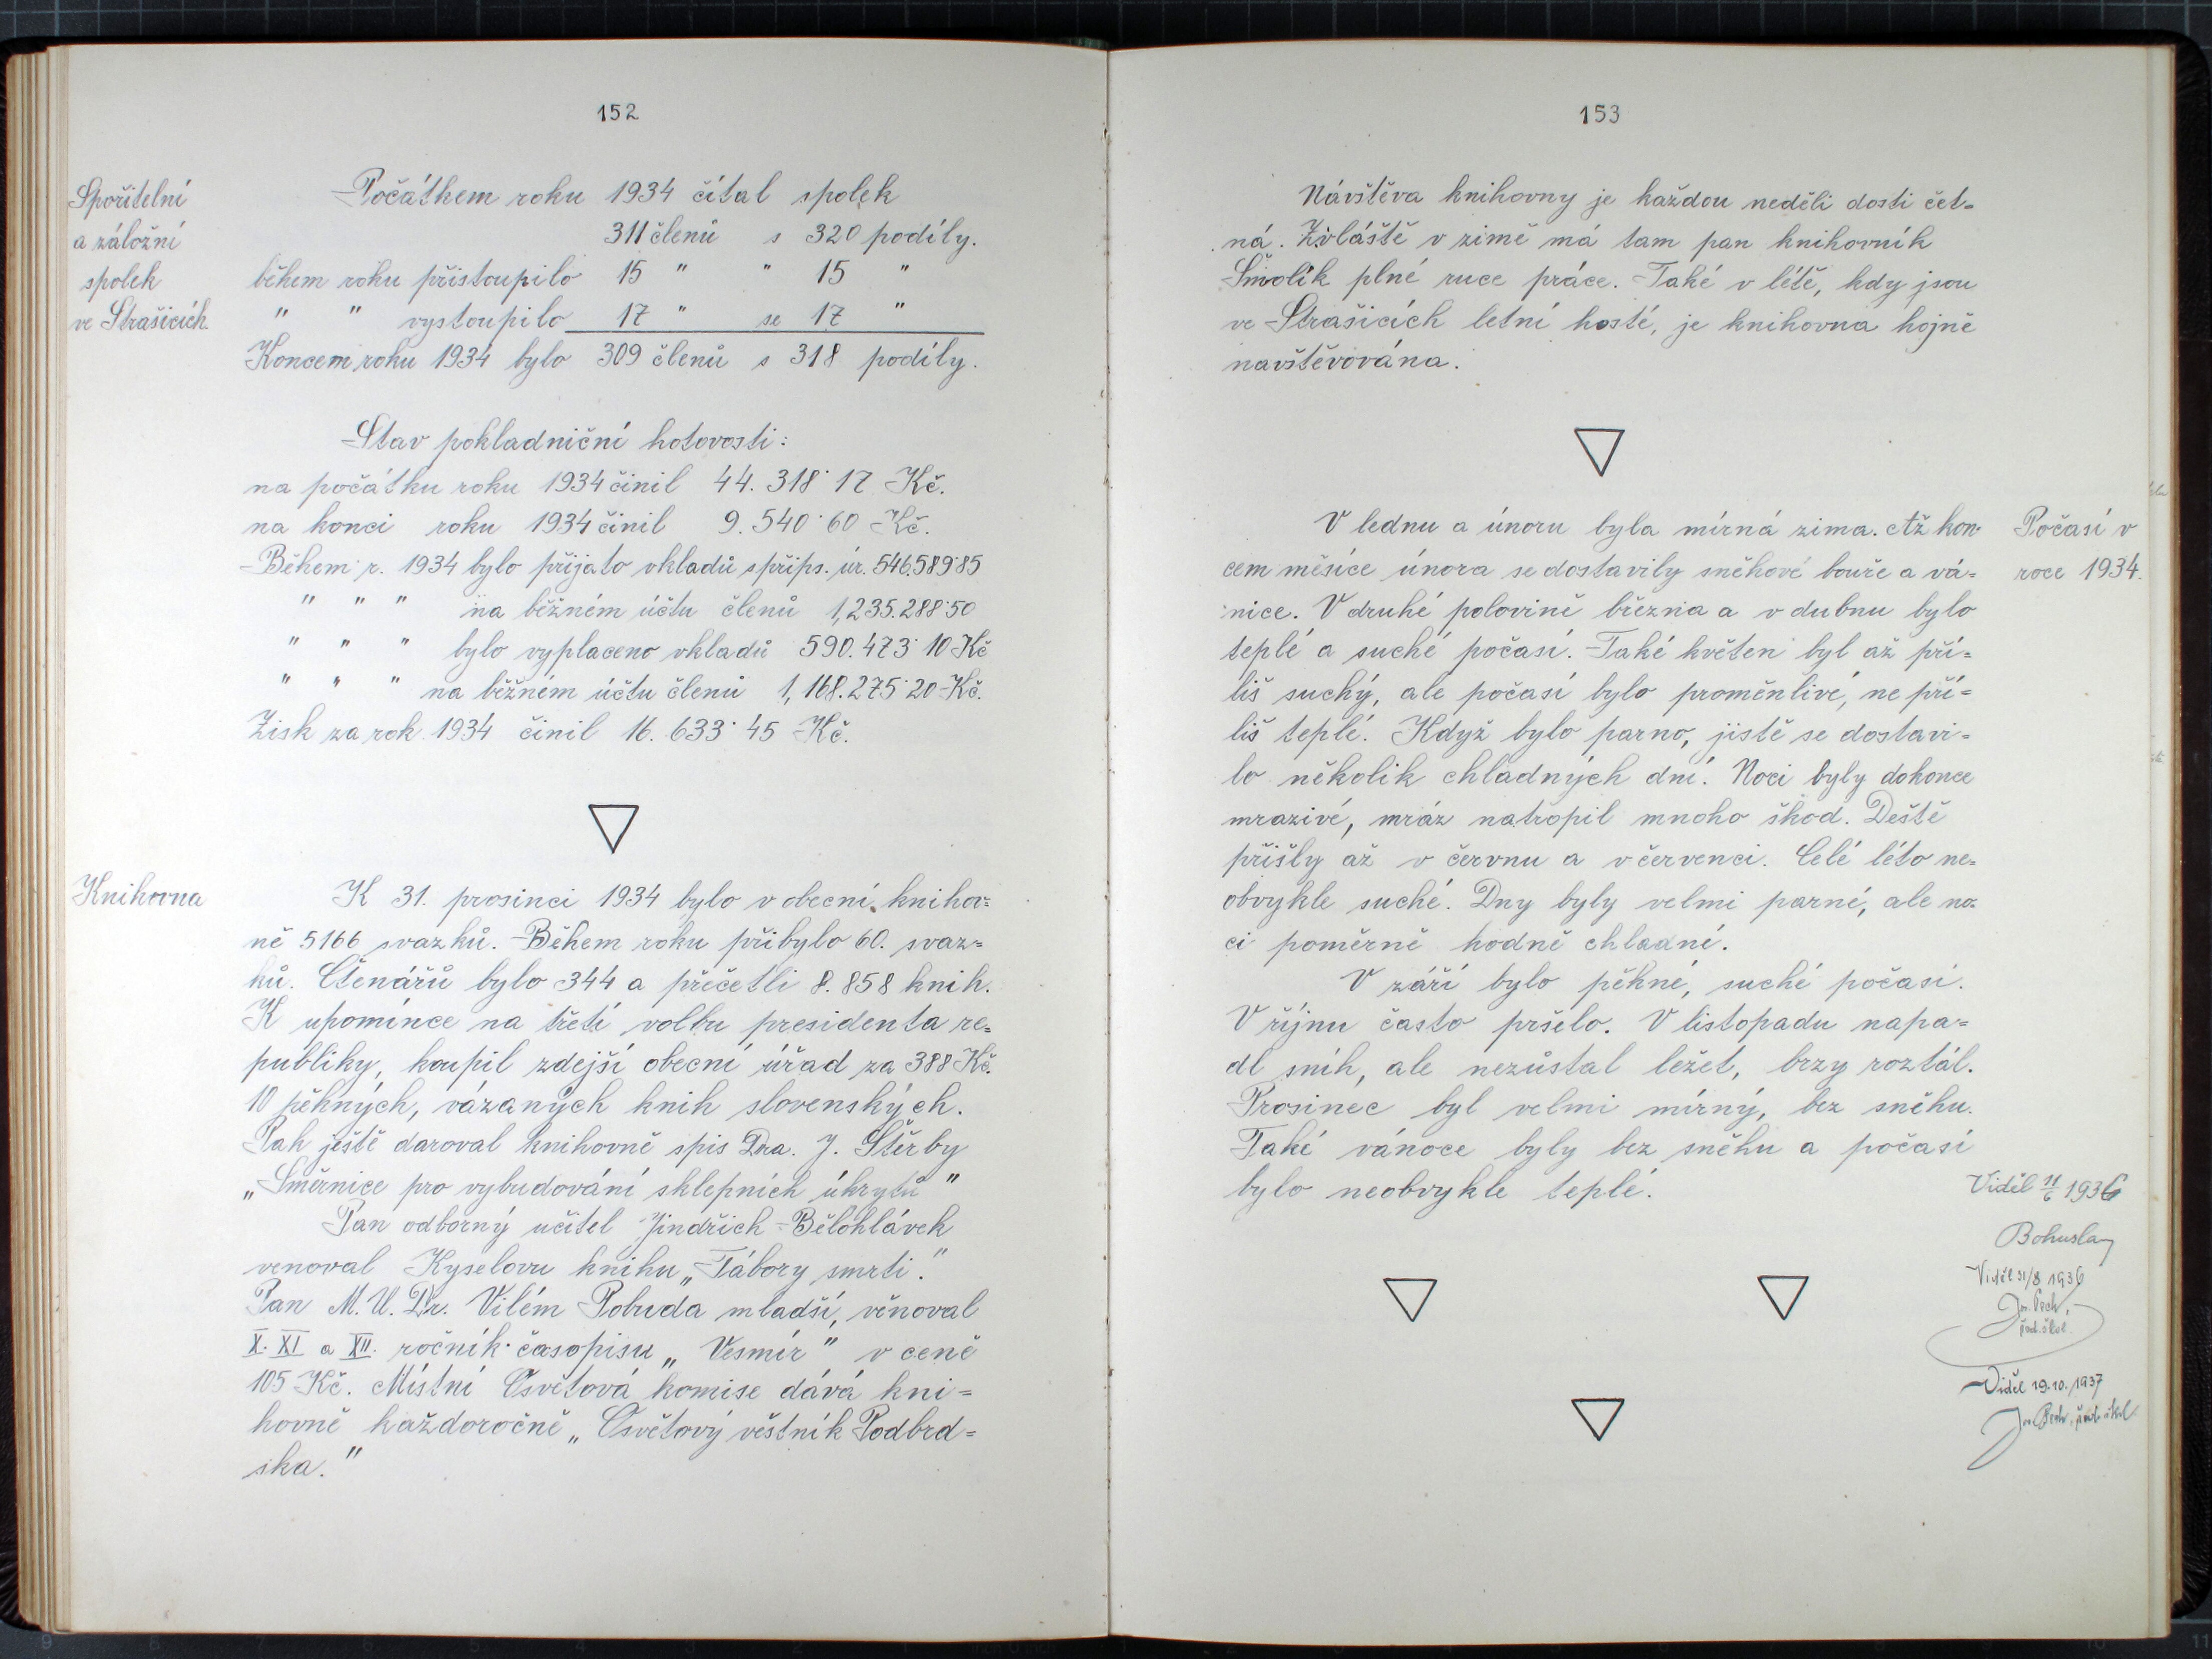 152
Spořitelní
a záložní
spolek
ve Strašicích.
Počátkem roku 1934 čítal spolek
311 členů s 320 podíly.
během roku přistoupilo 15 " " 15 "
" " vystoupilo 17 " se 17 "
Koncem roku 1934 bylo 309 členů s 318 podíly.
Stav pokladniční hotovosti:
na počátku roku 1934 činil 44.318˙17 Kč.
na konci roku 1934 činil 9.540˙60 Kč.
Během r. 1934 bylo přijato vkladů s přips. úr. 546.589˙85
" " " na běžném účtu členů 1,235.288˙50
" " " bylo vyplaceno vkladů 590.473˙10 Kč
" " " na běžném účtu členů 1,168.275˙20 Kč.
Zisk za rok 1934 činil 16.633˙45 Kč.
Knihovna
K 31. prosinci 1934 bylo v obecní knihov=
ně 5166 svazků. Během roku přibylo 60. svaz=
ků. Čtenářů bylo 344 a přečetli 8.858 knih.
K upomínce na třetí volbu presidenta re=
publiky, koupil zdejší obecní úřad za 388 Kč.
10 pěkných, vázaných knih slovenských.
Pak ještě daroval knihovně spis Dra. J. Štěrby
„Směrnice pro vybudování sklepních úkrytů"
Pan odborný učitel Jindřich Bělohlávek
venoval Kyselovu knihu „Tábory smrti."
Pan M.U.Dr. Vilém Pobuda mladší, věnoval
X. XI a XII. ročník časopisu „Vesmír" v ceně
105 Kč. Místní Osvětová komise dává kni=
hovně každoročně „Osvětový věstník Podbrd=
ska."
153
Návštěva knihovny je každou neděli dosti čet=
ná. Zvláště v zimě má tam pan knihovník
Smolík plné ruce práce. Také v létě, kdy jsou
ve Strašicích letní hosté, je knihovna hojně
navštěvována.
Počasí v
roce 1934.
V lednu a únoru byla mírná zima. Až kon=
cem měsíce února se dostavily sněhové bouře a vá=
nice. V druhé polovině března a v dubnu bylo
teplé a suché počasí. Také květen byl až pří=
liš suchý, ale počasí bylo proměnlivé, ne pří=
liš teplé. Když bylo parno, jistě se dostavi=
lo několik chladných dní. Noci byly dokonce
mrazivé, mráz natropil mnoho škod. Deště
přišly až v červnu a v červenci. Celé léto ne=
obvykle suché. Dny byly velmi parné, ale no=
ci poměrně hodně chladné.
V září bylo pěkné, suché počasí.
V říjnu často pršelo. V listopadu napa=
dl sníh, ale nezůstal ležet, brzy roztál.
Prosinec byl velmi mírný, bez sněhu.
Také vánoce byly bez sněhu a počasí
bylo neobvykle teplé.
Viděl 11/6 1936
Bohuslav
Viděl 31/8 1936
Jar. Pech,
řed. škol.
Viděl 19.10.1937
Jar. Pech, řed. škol